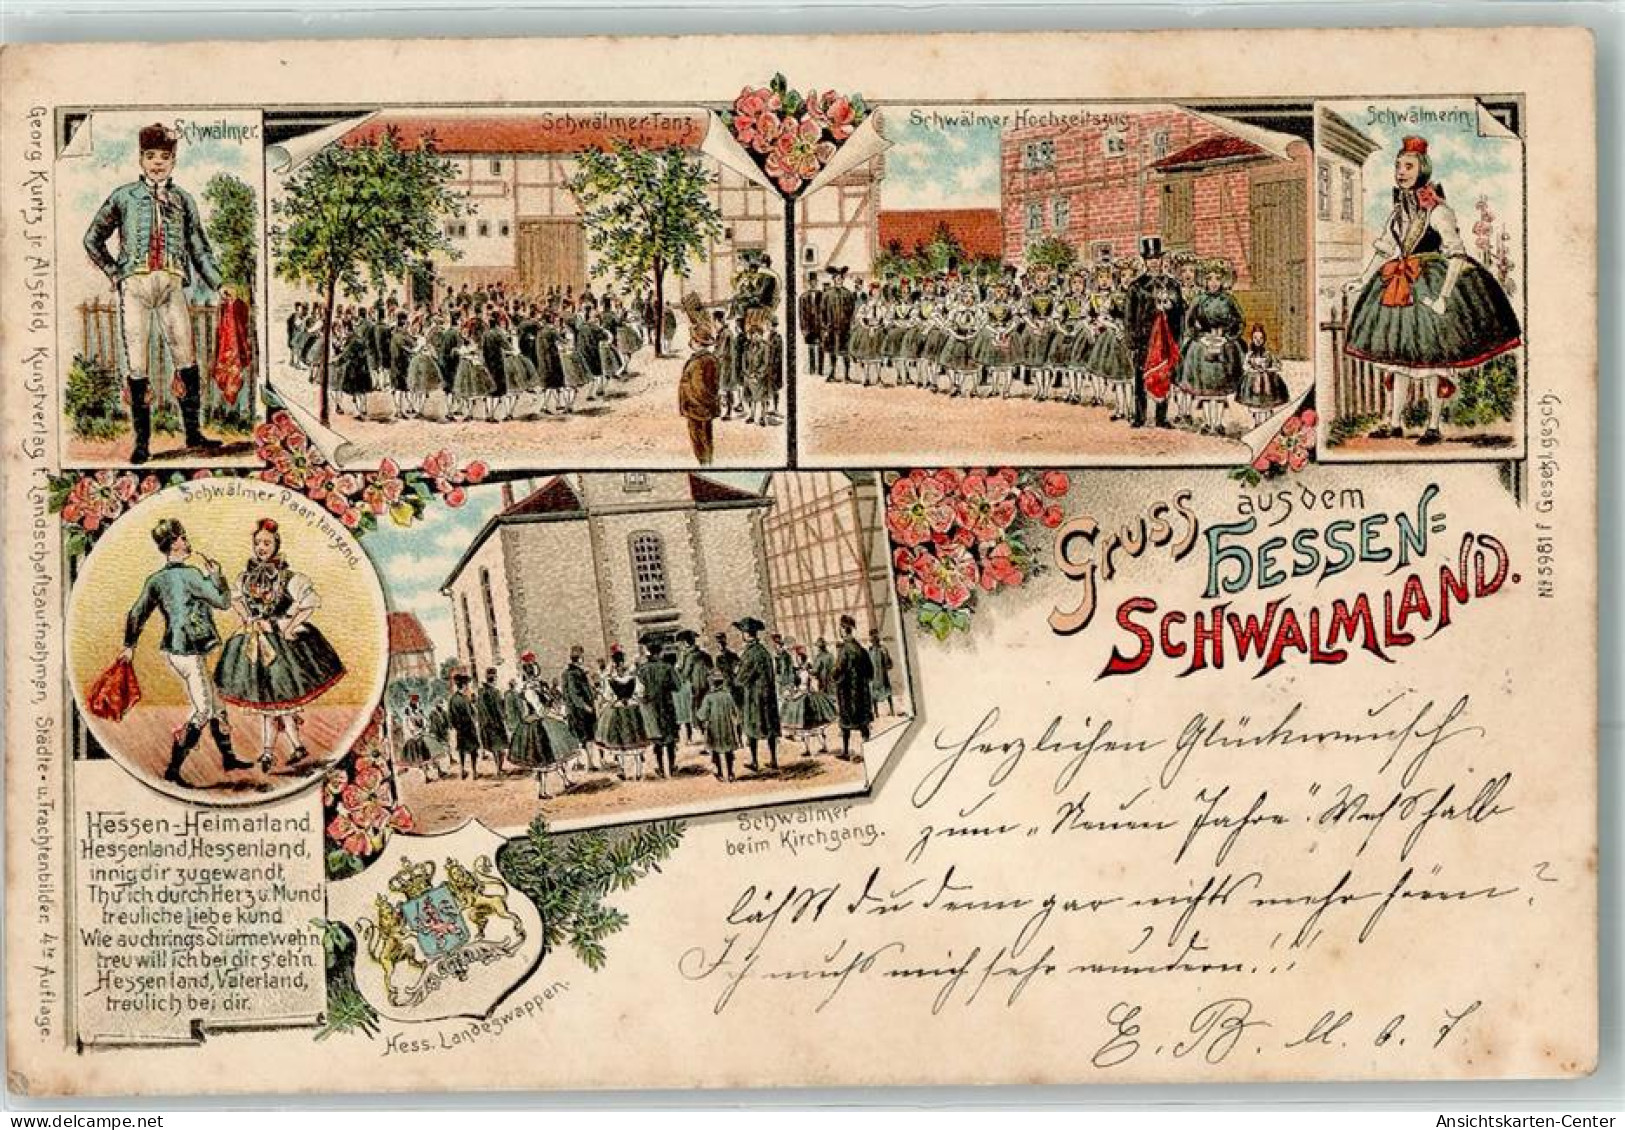 Schwälmer.
Schwälmer-Tanz.
Schwälmer Hochzeitszug.
Schwälmerin.
Georg Kurtz jr. Alsfeld, Kunstverlag f. Landschaftsaufnahmen, Städte- u. Trachtenbilder, 4te Auflage.
Schwälmer Paar, tanzend.
Gruss aus dem
Hessen=
Schwalmland.
No 5981 f Gesetzl. gesch.
Schwälmer
beim Kirchgang.
Hessen-Heimatland
Hessenland, Hessenland,
innig dir zugewandt
Thu' ich durch Herz u. Mund
treuliche Liebe kund
Wie auch rings Stürme weh'n,
treu will ich bei dir steh'n.
Hessenland, Vaterland,
treulich bei dir.
Hess. Landeswappen.
Herzlichen Glückwunsch
zum „Neuen Jahre". Weßhalb
läßt du denn gar nichts mehr hören?
Ich muß mich sehr wundern!!!
E. B.
Ansichtskarten-Center